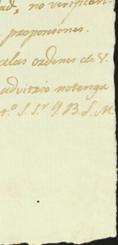 no verificar-
proporciones.
a las ordenes de V.
advitrio notenga
S. Sr. Q. B. L. M.